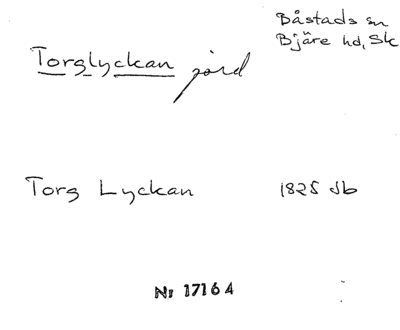 Båstads sn
Bjäre hd, Sk
Torglyckan jord
Torg Lyckan 1825 Jb
Nr 17164